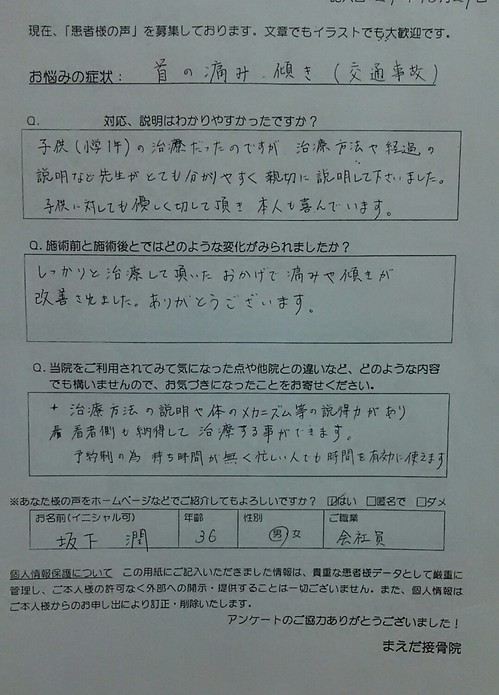 現在、「患者様の声」を募集しております。文章でもイラストでも大歓迎です。
お悩みの症状： 首の痛み、傾き（交通事故）
Q. 対応、説明はわかりやすかったですか？
子供（小学1年）の治療だったのですが 治療方法や経過の
説明など先生がとても分かりやすく親切に説明して下さいました。
子供に対しても優しく切して頂き 本人も喜んでいます。
Q. 施術前と施術後とではどのような変化がみられましたか？
しっかりと治療して頂いた おかげで 痛みや傾きが
改善されました。ありがとうございます。
Q. 当院をご利用されてみて気になった点や他院との違いなど、どのような内容
でも構いませんので、お気づきになったことをお寄せください。
治療方法の説明や体のメカニズム等の説得力があり
患者側も納得して 治療する事ができます。
予約制の為 待ち時間が無く忙しい人でも時間を有効に使えます
※あなた様の声をホームページなどでご紹介してもよろしいですか？ ☑はい □匿名で □ダメ
お名前(イニシャル可) 年齢 性別 ご職業
坂下 潤 36 男/女 会社員
個人情報保護について この用紙にご記入いただきました情報は、貴重な患者様データとして厳重に
管理し、ご本人様の許可なく外部への開示・提供することは一切ございません。また、個人情報は
ご本人様からのお申し出により訂正・削除いたします。
アンケートのご協力ありがとうございました！
まえだ接骨院